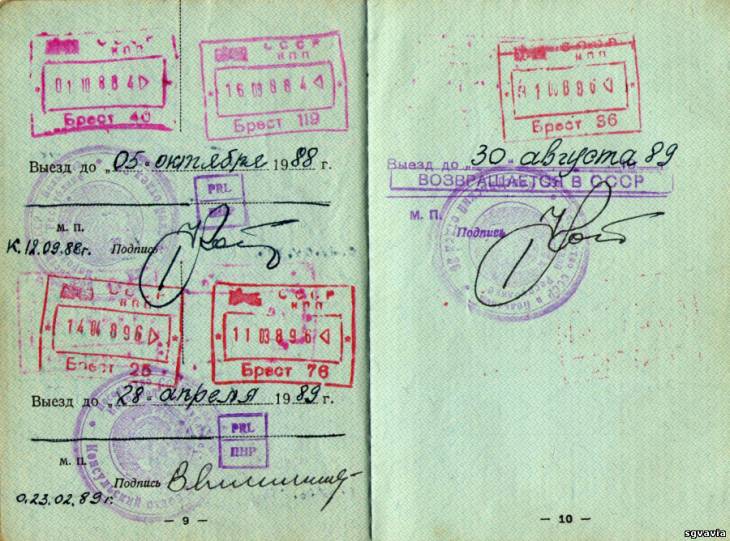 СССР
КПП
01 10 88 4
Брест 40
СССР
КПП
16 09 88 4
Брест 119
Выезд до „05“ октября 1988 г.
PRL
М. П.
К.12.09.88г. Подпись
СССР
КПП
14 04 89 6
Брест 25
СССР
КПП
11 03 89 6
Брест 76
Выезд до „28“ апреля 1989 г.
PRL
ПНР
М. П.
Подпись
0.23.02.89г.
Консульский
— 9 —
СССР
КПП
31 08 89 6
Брест 36
Выезд до „30“ августа 89
ВОЗВРАЩАЕТСЯ В СССР
М. П.
Подпись
— 10 —
sgvavia